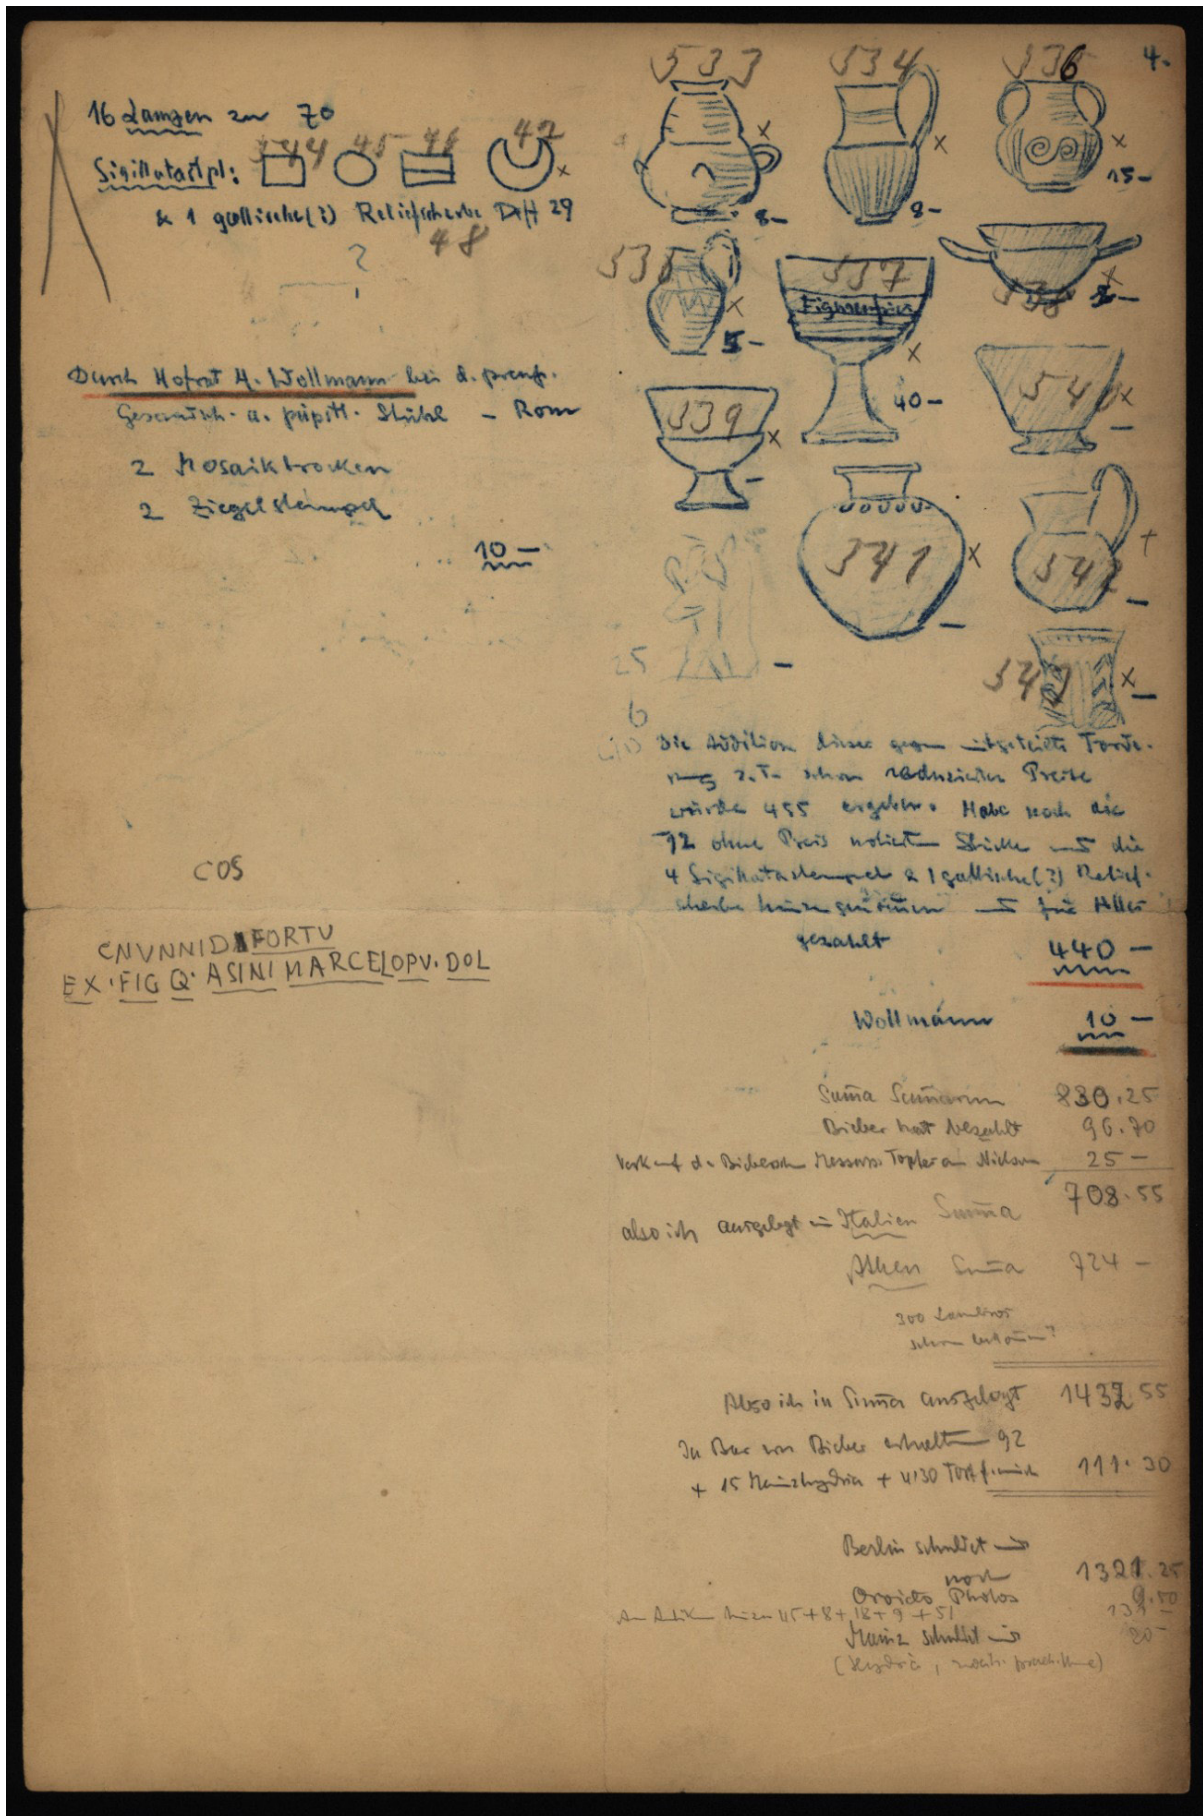 4.
16 Lampen zu 70
544 45 46 47
Sigillatastpl:
& 1 gallische(?) Reliefscherbe DrH 29
48
?
Durch Hofrat H. Wollmann bei d. preuß.
Gesandtsch. a. päpstl. Stuhl – Rom
2 Mosaikbrocken
2 Ziegelstempel
10 –
COS
CNVNNIDI FORTU
EX·FIG Q·ASINI MARCELOPV·DOL
533 534 536
8– 8– 15–
535 537 538
5–
40–
539 540
541 542
25
6
Die Addition dieser gegen mitgeteilte Forde-
rung z.T. schon reduzierten Preise
würde 455 ergeben. Habe noch die
12 ohne Preis notierten Stücke und die
4 Sigillatastempel & 1 gallische(?) Relief-
scherbe hinzugenommen und für Alles
gezahlt 440 –
Wollmann 10 –
Suma Sumarum 830.25
Bieber hat bezahlt 96.70
Verkauf d. Bieberschen 25 –
708.55
also ich ausgelegt in Italien Suma
Athen Suma 724 –
300
schon bekommen?
Also ich in Suma ausgelegt 1432.55
In Bar von Bieber erhalten 92
+ 15 Mainzhydria + 4,30 111.30
Berlin schuldet mir
noch 1321.25
Orvieto Photos 9.50
45+8+18+9+51 131 –
Mainz schuldet mir 20 –